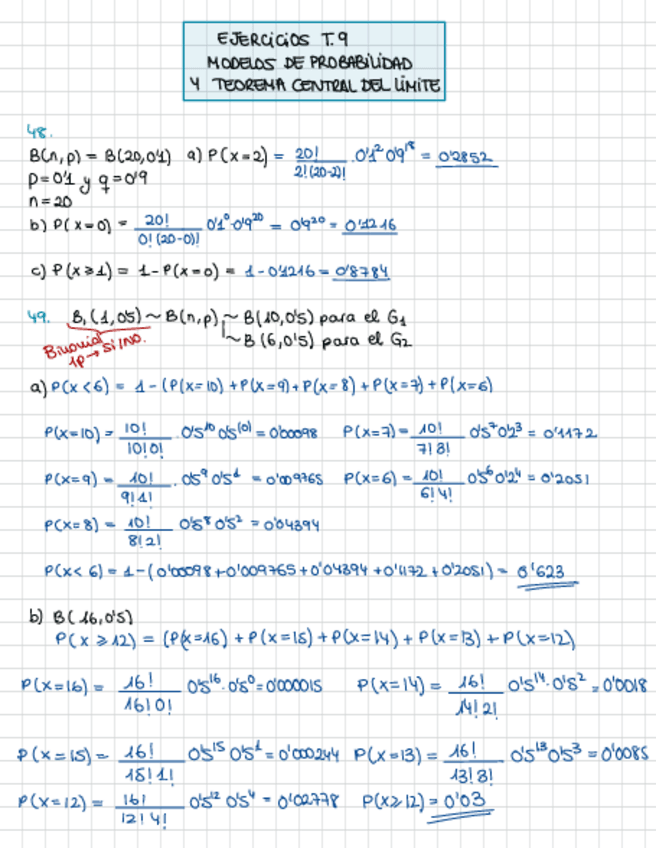 EJERCICIOS T.9
MODELOS DE PROBABILIDAD
Y TEOREMA CENTRAL DEL LÍMITE
48.
B(n,p) = B(20,0'1) a) P(x=2) = 20!/2!(20-2)! · 0'1² 0'9¹⁸ = 0'2852
p=0'1 y q=0'9
n=20
b) P(x=0) = 20!/0!(20-0)! 0'1⁰·0'9²⁰ = 0'9²⁰ = 0'1216
c) P(x≥1) = 1-P(x=0) = 1-0'1216 = 0'8784
49. B,(1,0'5) ~ B(n,p) ~ B(10,0'5) para el G₁
~ B(6,0'5) para el G₂
Binomial
1p → si/no.
a) P(x<6) = 1-(P(x=10)+P(x=9)+P(x=8)+P(x=7)+P(x=6)
P(x=10) = 10!/10!0! · 0'5¹⁰ 0'5⁽⁰⁾ = 0'00098 P(x=7) = 10!/7!3! 0'5⁷0'2³ = 0'1172
P(x=9) = 10!/9!1! · 0'5⁹ 0'5¹ = 0'009765 P(x=6) = 10!/6!4! 0'5⁶ 0'2⁴ = 0'2051
P(x=8) = 10!/8!2! 0'5⁸ 0'5² = 0'04394
P(x<6) = 1-(0'00098+0'009765+0'04394+0'1172+0'2051) = 0'623
b) B(16,0'5)
P(x≥12) = (P(x=16)+P(x=15)+P(x=14)+P(x=13)+P(x=12)
P(x=16) = 16!/16!0! 0'5¹⁶·0'5⁰ = 0'000015 P(x=14) = 16!/14!2! 0'5¹⁴·0'5² = 0'0018
P(x=15) = 16!/15!1! 0'5¹⁵ 0'5¹ = 0'000244 P(x=13) = 16!/13!3! 0'5¹³0'5³ = 0'0085
P(x=12) = 16!/12!4! 0'5¹² 0'5⁴ = 0'02778 P(x≥12) = 0'03